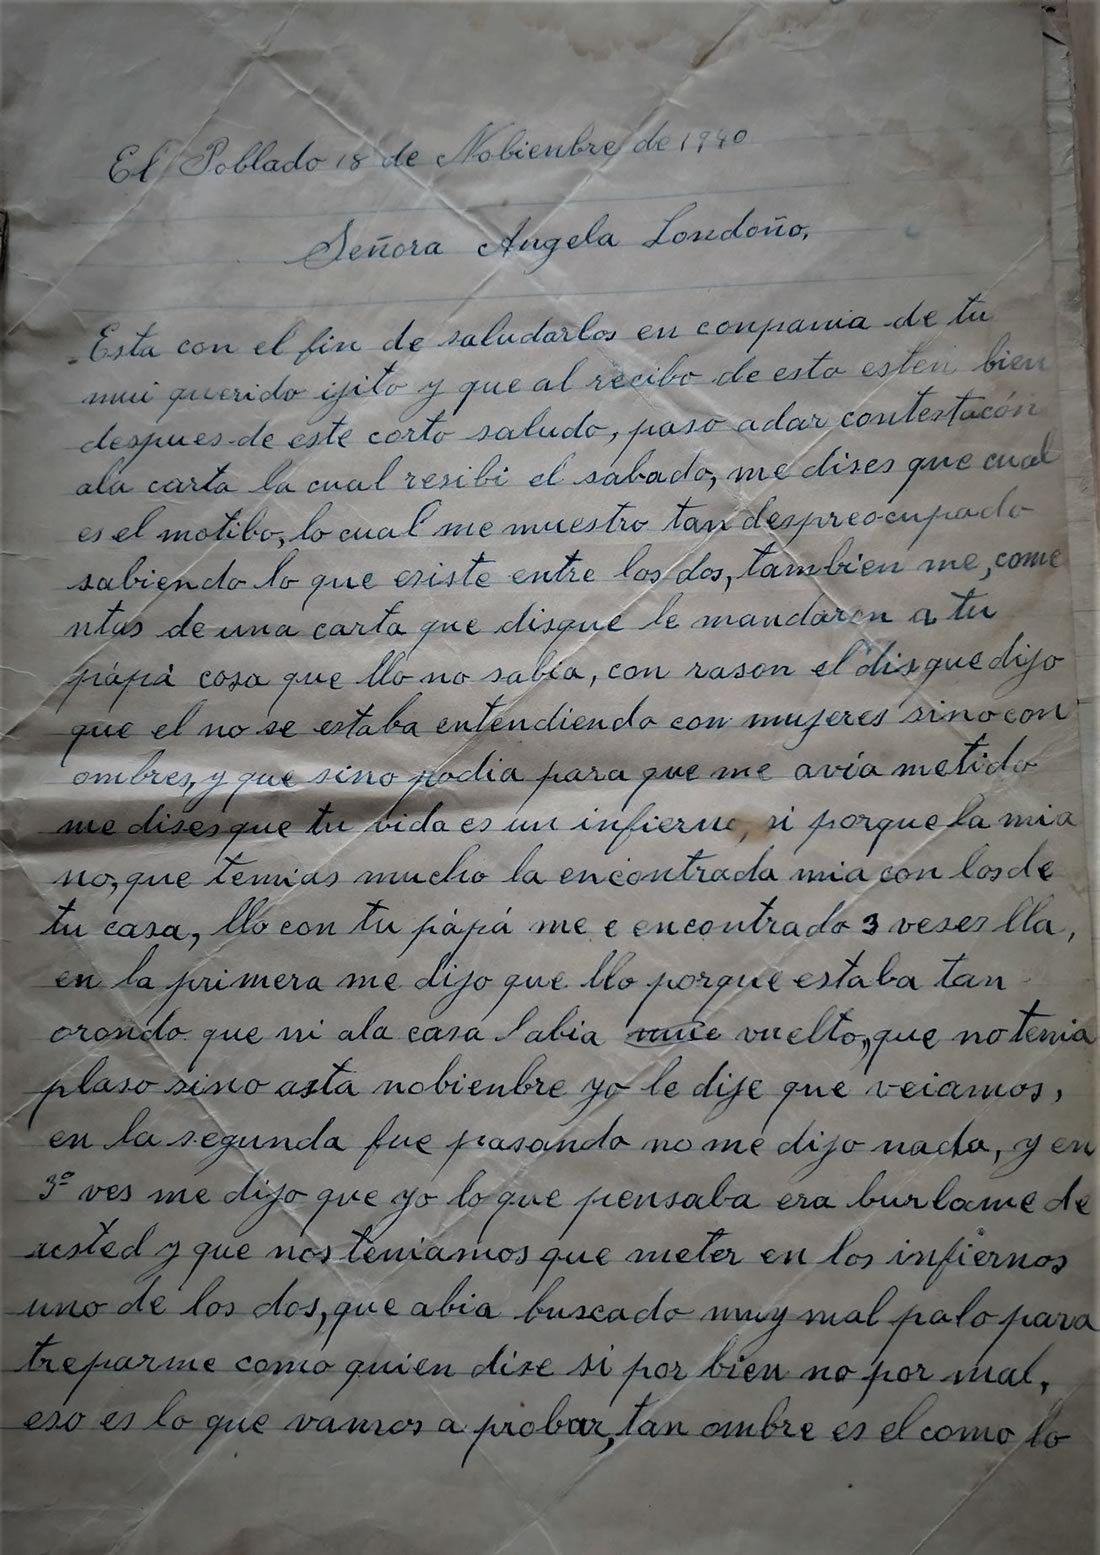 El Poblado 18 de Nobienbre de 1940
Señora Angela Londoño,
Esta con el fin de saludarlos en conpania de tu
mui querido ijito y que al recibo de esta esten bien
despues de este corto saludo, paso adar contestacón
ala carta la cual resibi el sabado, me dises que cual
es el motibo, lo cual me muestro tan despreocupado
sabiendo lo que esiste entre los dos, tambien me, come
ntas de una carta que disque le mandaron a tu
pápá cosa que llo no sabia, con rason el disque dijo
que el no se estaba entendiendo con mujeres sino con
ombres, y que sino podia para que me avia metido
me dises que tu vida es un infierno, si porque la mia
no, que temias mucho la encontrada mia con los de
tu casa, llo con tu pápá me e encontrado 3 veses lla,
en la primera me dijo que llo porque estaba tan
orondo que ni ala casa abia vuelto, que no tenia
plaso sino asta nobienbre yo le dije que veiamos,
en la segunda fue pasando no me dijo nada, y en
3º ves me dijo que yo lo que pensaba era burlame de
usted y que nos teniamos que meter en los infiernos
uno de los dos, que abia buscado muy mal palo para
treparme como quien dise si por bien no por mal,
eso es lo que vamos a probar, tan ombre es el como lo